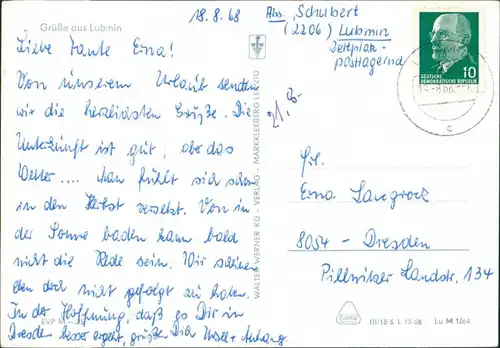 Grüße aus Lubmin
18.8.68
Abs. Schubert
(2206) Lubmin
Zeltplatz
postlagernd
Liebe Tante Erna!
Von unserem Urlaub senden
wir die herzlichsten Grüße. Die
Unterkunft ist gut, aber das
Wetter.... Man fühlt sich schon
in den Herbst versetzt. Von in
der Sonne baden kann bald
nicht die Rede sein. Wir
den doch nicht gefolgt zu haben.
In der Hoffnung, daß es Dir in
Dresden besser ergeht, grüßen Dich Ursel + Anhang.
21,8-
DEUTSCHE
DEMOKRATISCHE REPUBLIK
10
Frl.
Erna Langrock
8054 - Dresden
Pillnitzer Landstr. 134
WALTER WERNER KG · VERLAG · MARKKLEEBERG LEIPZIG
EVP M
III/18/6 L 15 68 Lu M 1/64